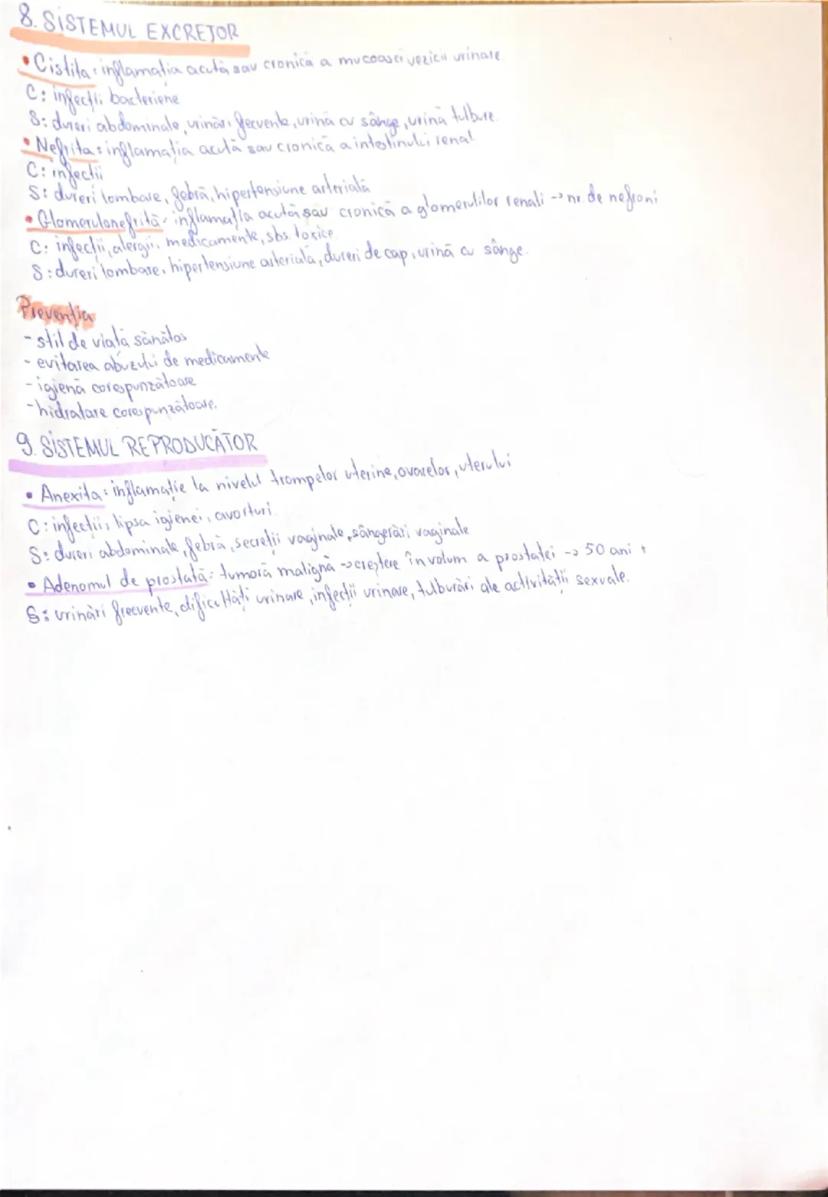 8. SISTEMUL EXCRETOR
• Cistita: inflamația acută sau cronică a mucoasei vezicii urinare
C: infecții bacteriene
S: dureri abdominale, urinări frecvente, urină cu sânge, urină tulbure.
• Nefrita: inflamația acută sau cronică a intestinului renal
C: infecții
S: dureri lombare, febră, hipertensiune arterială
• Glomerulonefrită: inflamația acută sau cronică a glomerulilor renali -> nr. de nefroni
C: infecții, alergii, medicamente, sbs. toxice
S: dureri lombare, hipertensiune arterială, dureri de cap, urină cu sânge.
Prevenția
- stil de viață sănătos
- evitarea abuzului de medicamente
- igienă corespunzătoare
- hidratare corespunzătoare.
9. SISTEMUL REPRODUCĂTOR
• Anexita: inflamație la nivelul trompelor uterine, ovarelor, uterului
C: infecții, lipsa igienei, avorturi
S: dureri abdominale, febră, secreții vaginale, sângerări vaginale
• Adenomul de prostată: tumoră malignă -> creștere în volum a prostatei -> 50 ani +
S: urinări frecvente, dificultăți urinare, infecții urinare, tulburări ale activității sexuale.